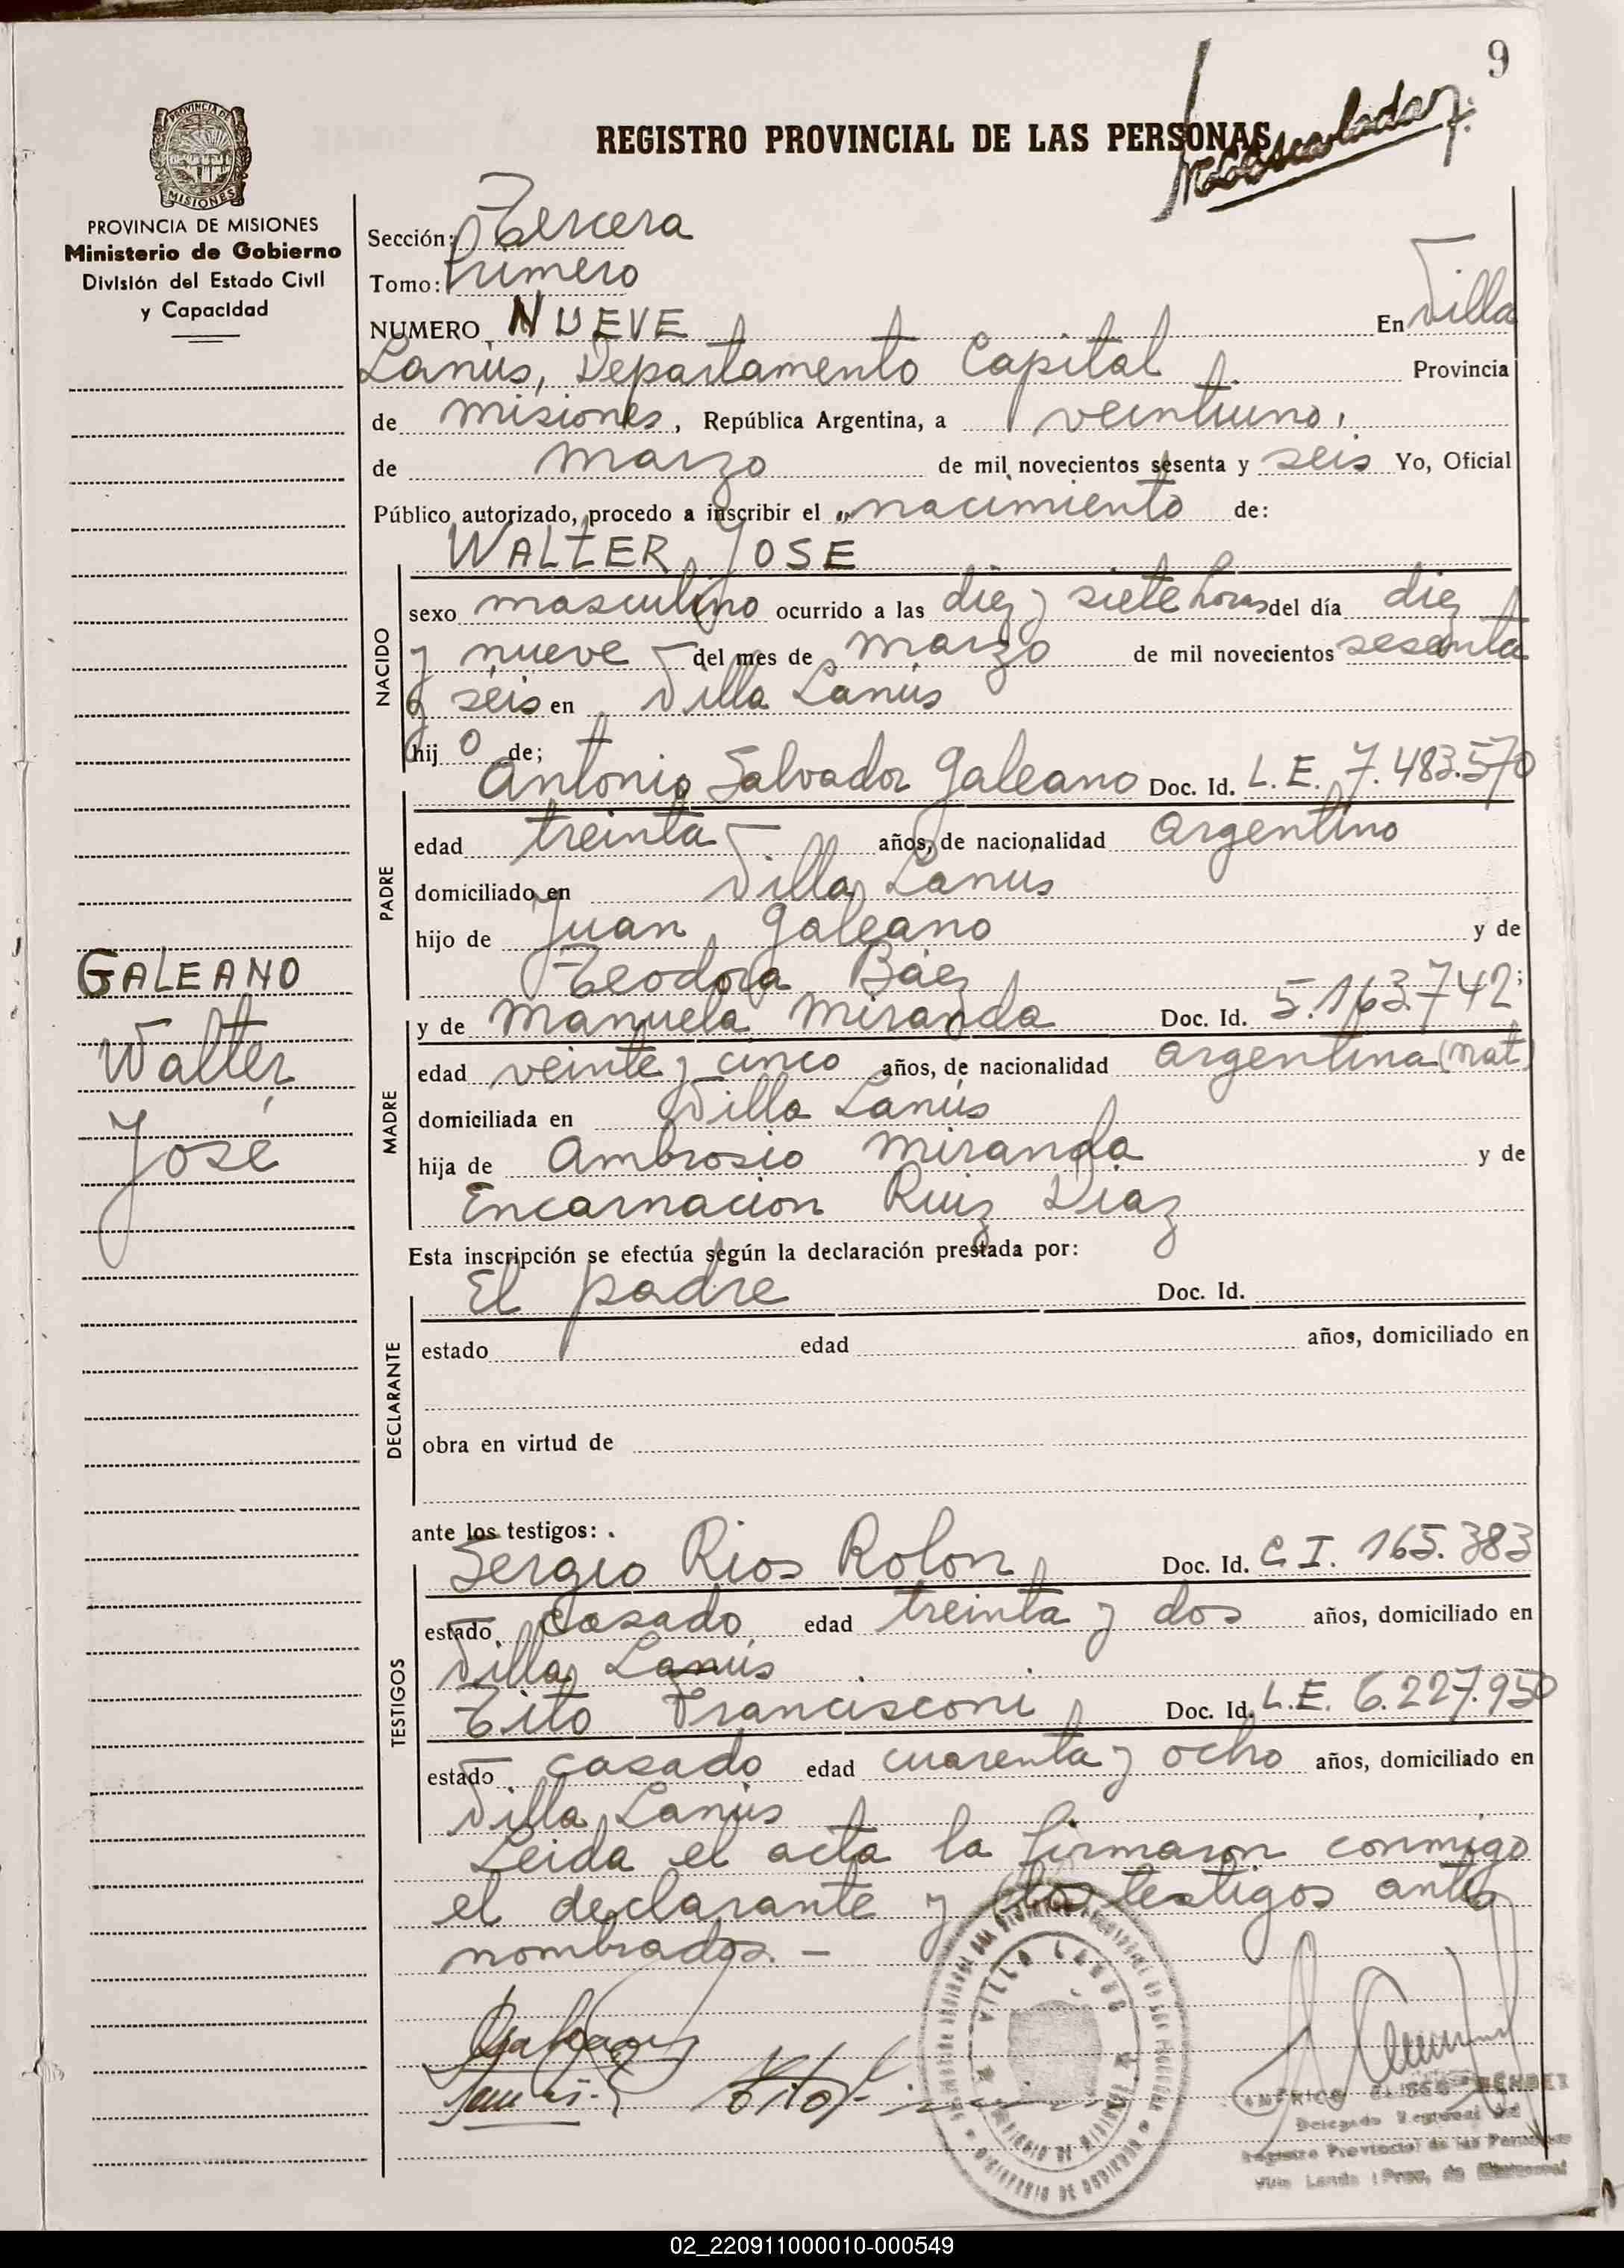 9
REGISTRO PROVINCIAL DE LAS PERSONAS
PROVINCIA DE
MISIONES
PROVINCIA DE MISIONES
Ministerio de Gobierno
División del Estado Civil
y Capacidad
Sección: Tercera
Tomo: Primero
NUMERO NUEVE En Villa
Lanús, Departamento Capital Provincia
de misiones, República Argentina, a veintiuno
de marzo de mil novecientos sesenta y seis Yo, Oficial
Público autorizado, procedo a inscribir el nacimiento de:
WALTER JOSE
NACIDO
sexo masculino ocurrido a las diez y siete horas del día diez
y nueve del mes de marzo de mil novecientos sesenta
y seis en Villa Lanús
hij o de;
Antonio Salvador Galeano Doc. Id. L.E. 7.483.570
PADRE
edad treinta años, de nacionalidad argentino
domiciliado en Villa Lanus
hijo de Juan Galeano y de
Teodora Báez
y de Manuela Miranda Doc. Id. 5.163.742
MADRE
edad veinte y cinco años, de nacionalidad argentina (nat)
domiciliada en Villa Lanús
hija de Ambrosio Miranda y de
Encarnación Ruiz Diaz
GALEANO
Walter
José
Esta inscripción se efectúa según la declaración prestada por:
El padre Doc. Id.
DECLARANTE
estado edad años, domiciliado en
obra en virtud de
ante los testigos:
Sergio Rios Rolon Doc. Id. C.I. 165.383
TESTIGOS
estado casado edad treinta y dos años, domiciliado en
Villa Lanús
Tito Francisconi Doc. Id. L.E. 6.227.950
estado casado edad cuarenta y ocho años, domiciliado en
Villa Lanús
Leida el acta la firmaron conmigo
el declarante y los testigos antes
nombrados. —
VILLA LANUS
Delegado Regional del
Registro Provincial de las Personas
02_220911000010-000549